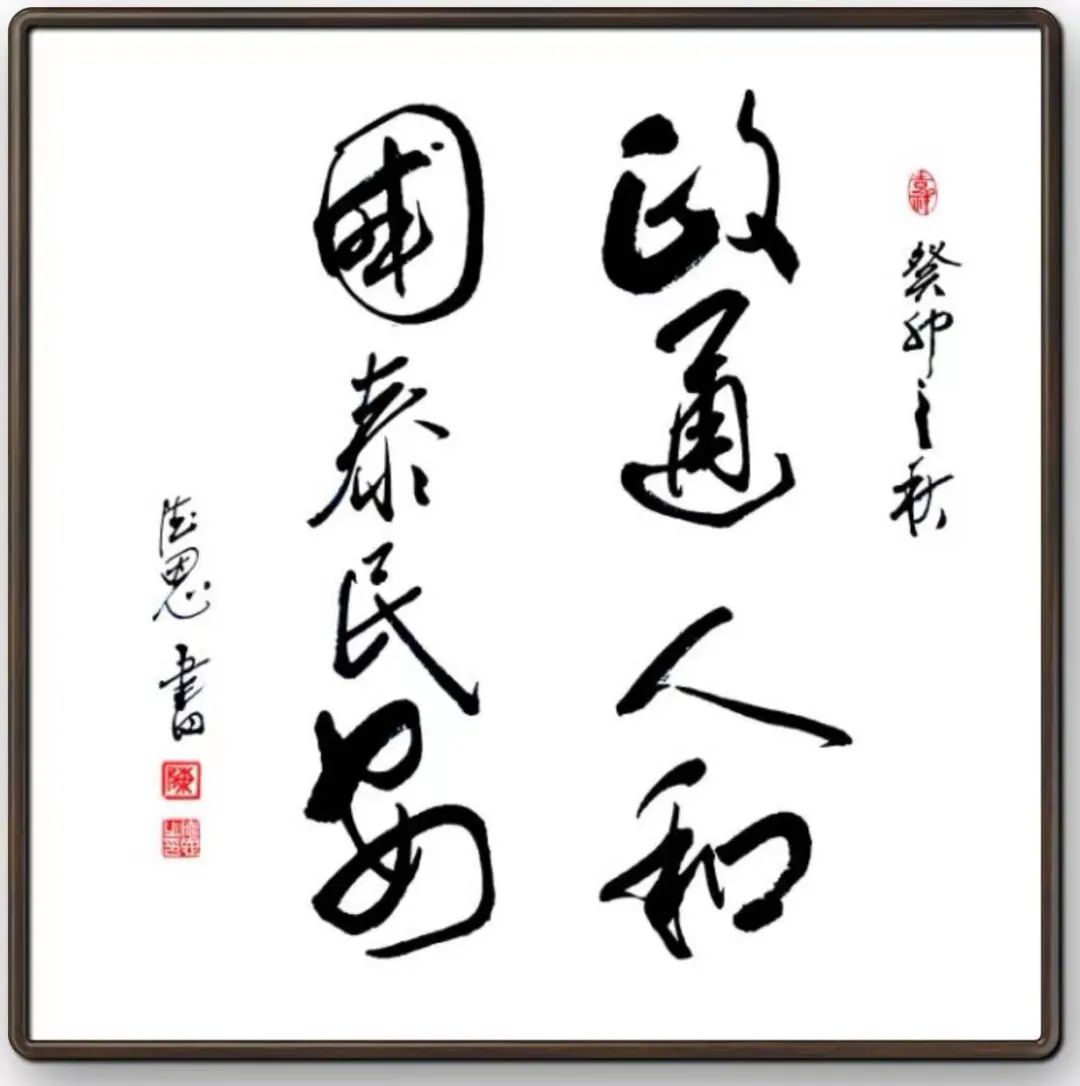 癸卯之秋
政通人和
國泰民安
德恩書
陳